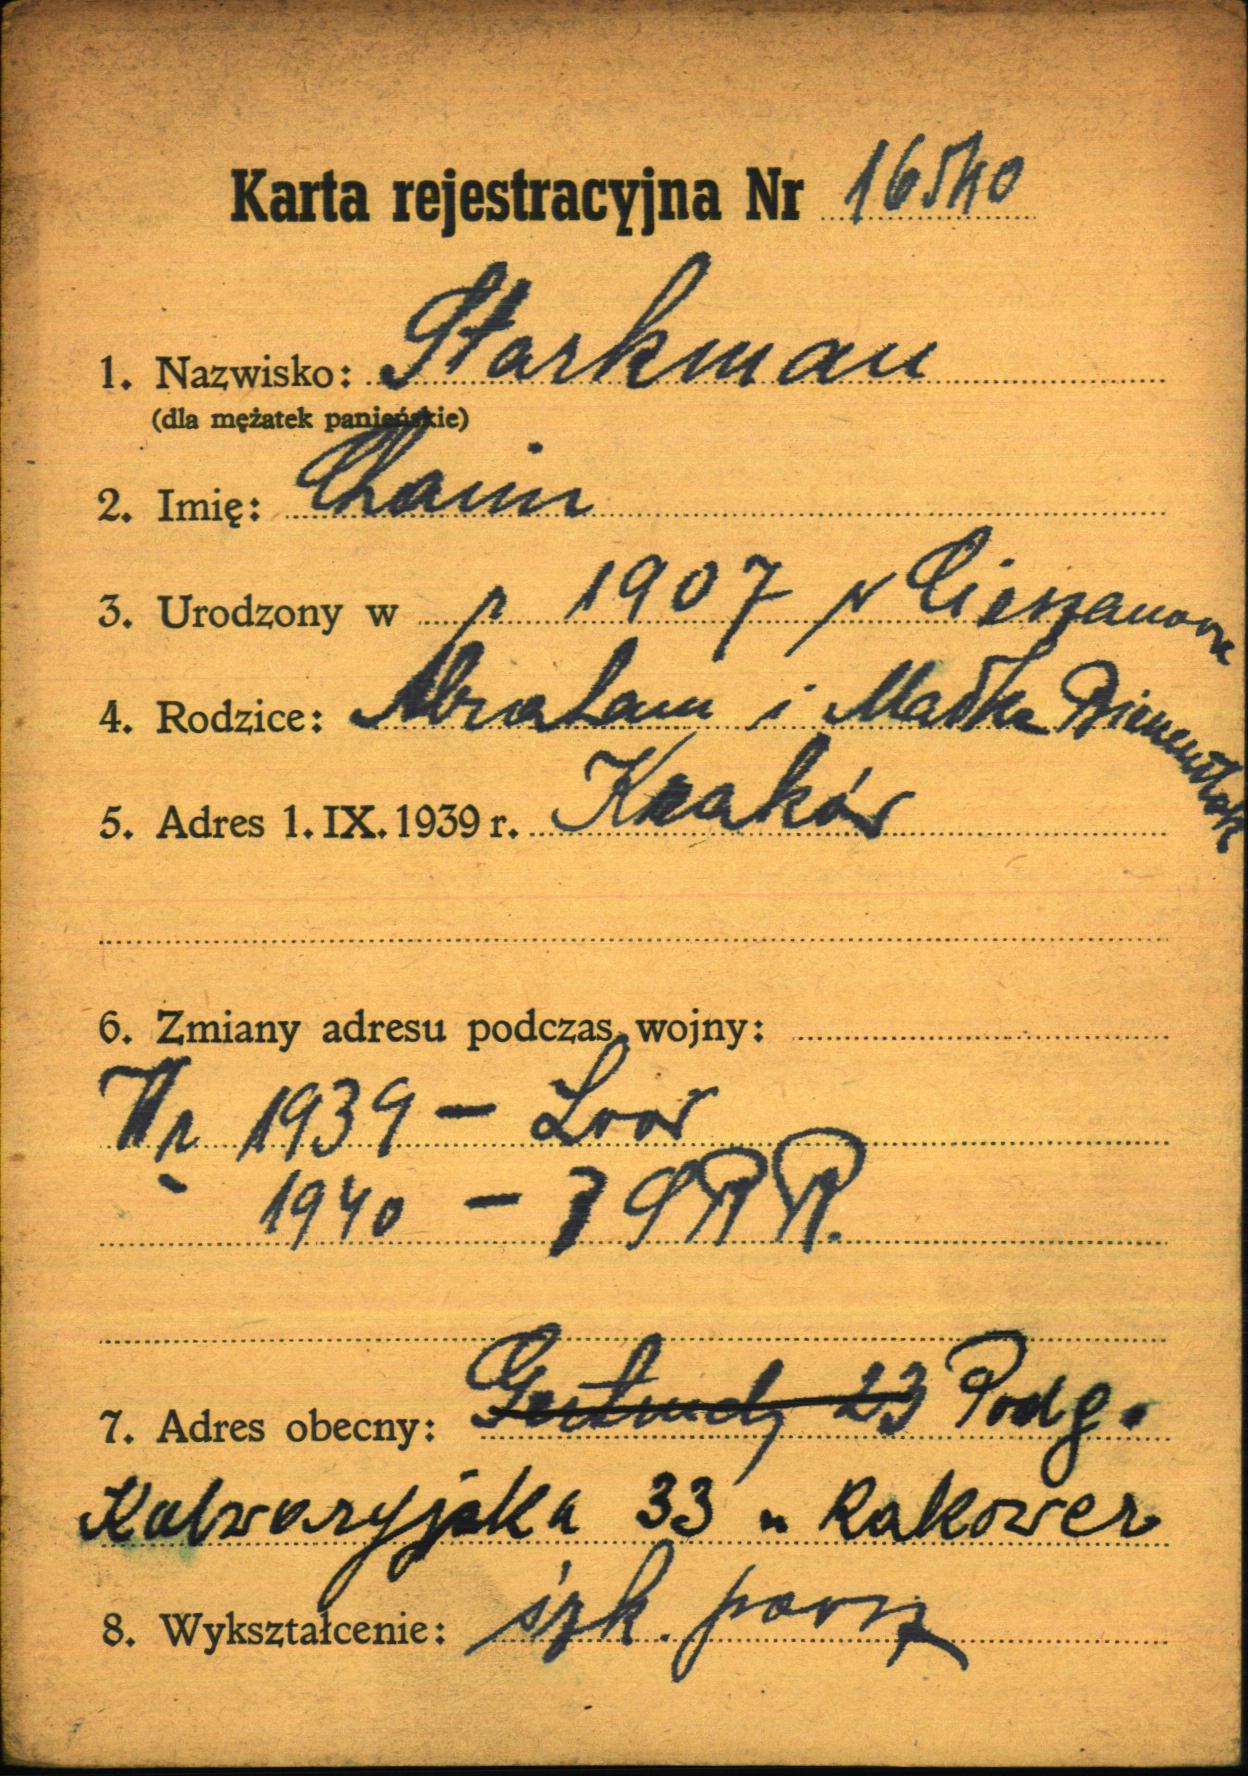 Karta rejestracyjna Nr 16540
1. Nazwisko: Starkman
(dla mężatek panieńskie)
2. Imię: Chaim
3. Urodzony w r 1907 w Cieszanowie
4. Rodzice: Abraham i Małka
5. Adres 1. IX. 1939 r. Kraków
6. Zmiany adresu podczas wojny:
W r. 1939 – Lwów
" 1940 – ZSRR.
7. Adres obecny: Gertrudy 23 Podg.
Kalwaryjska 33 u Rakower
8. Wykształcenie: szk. powsz